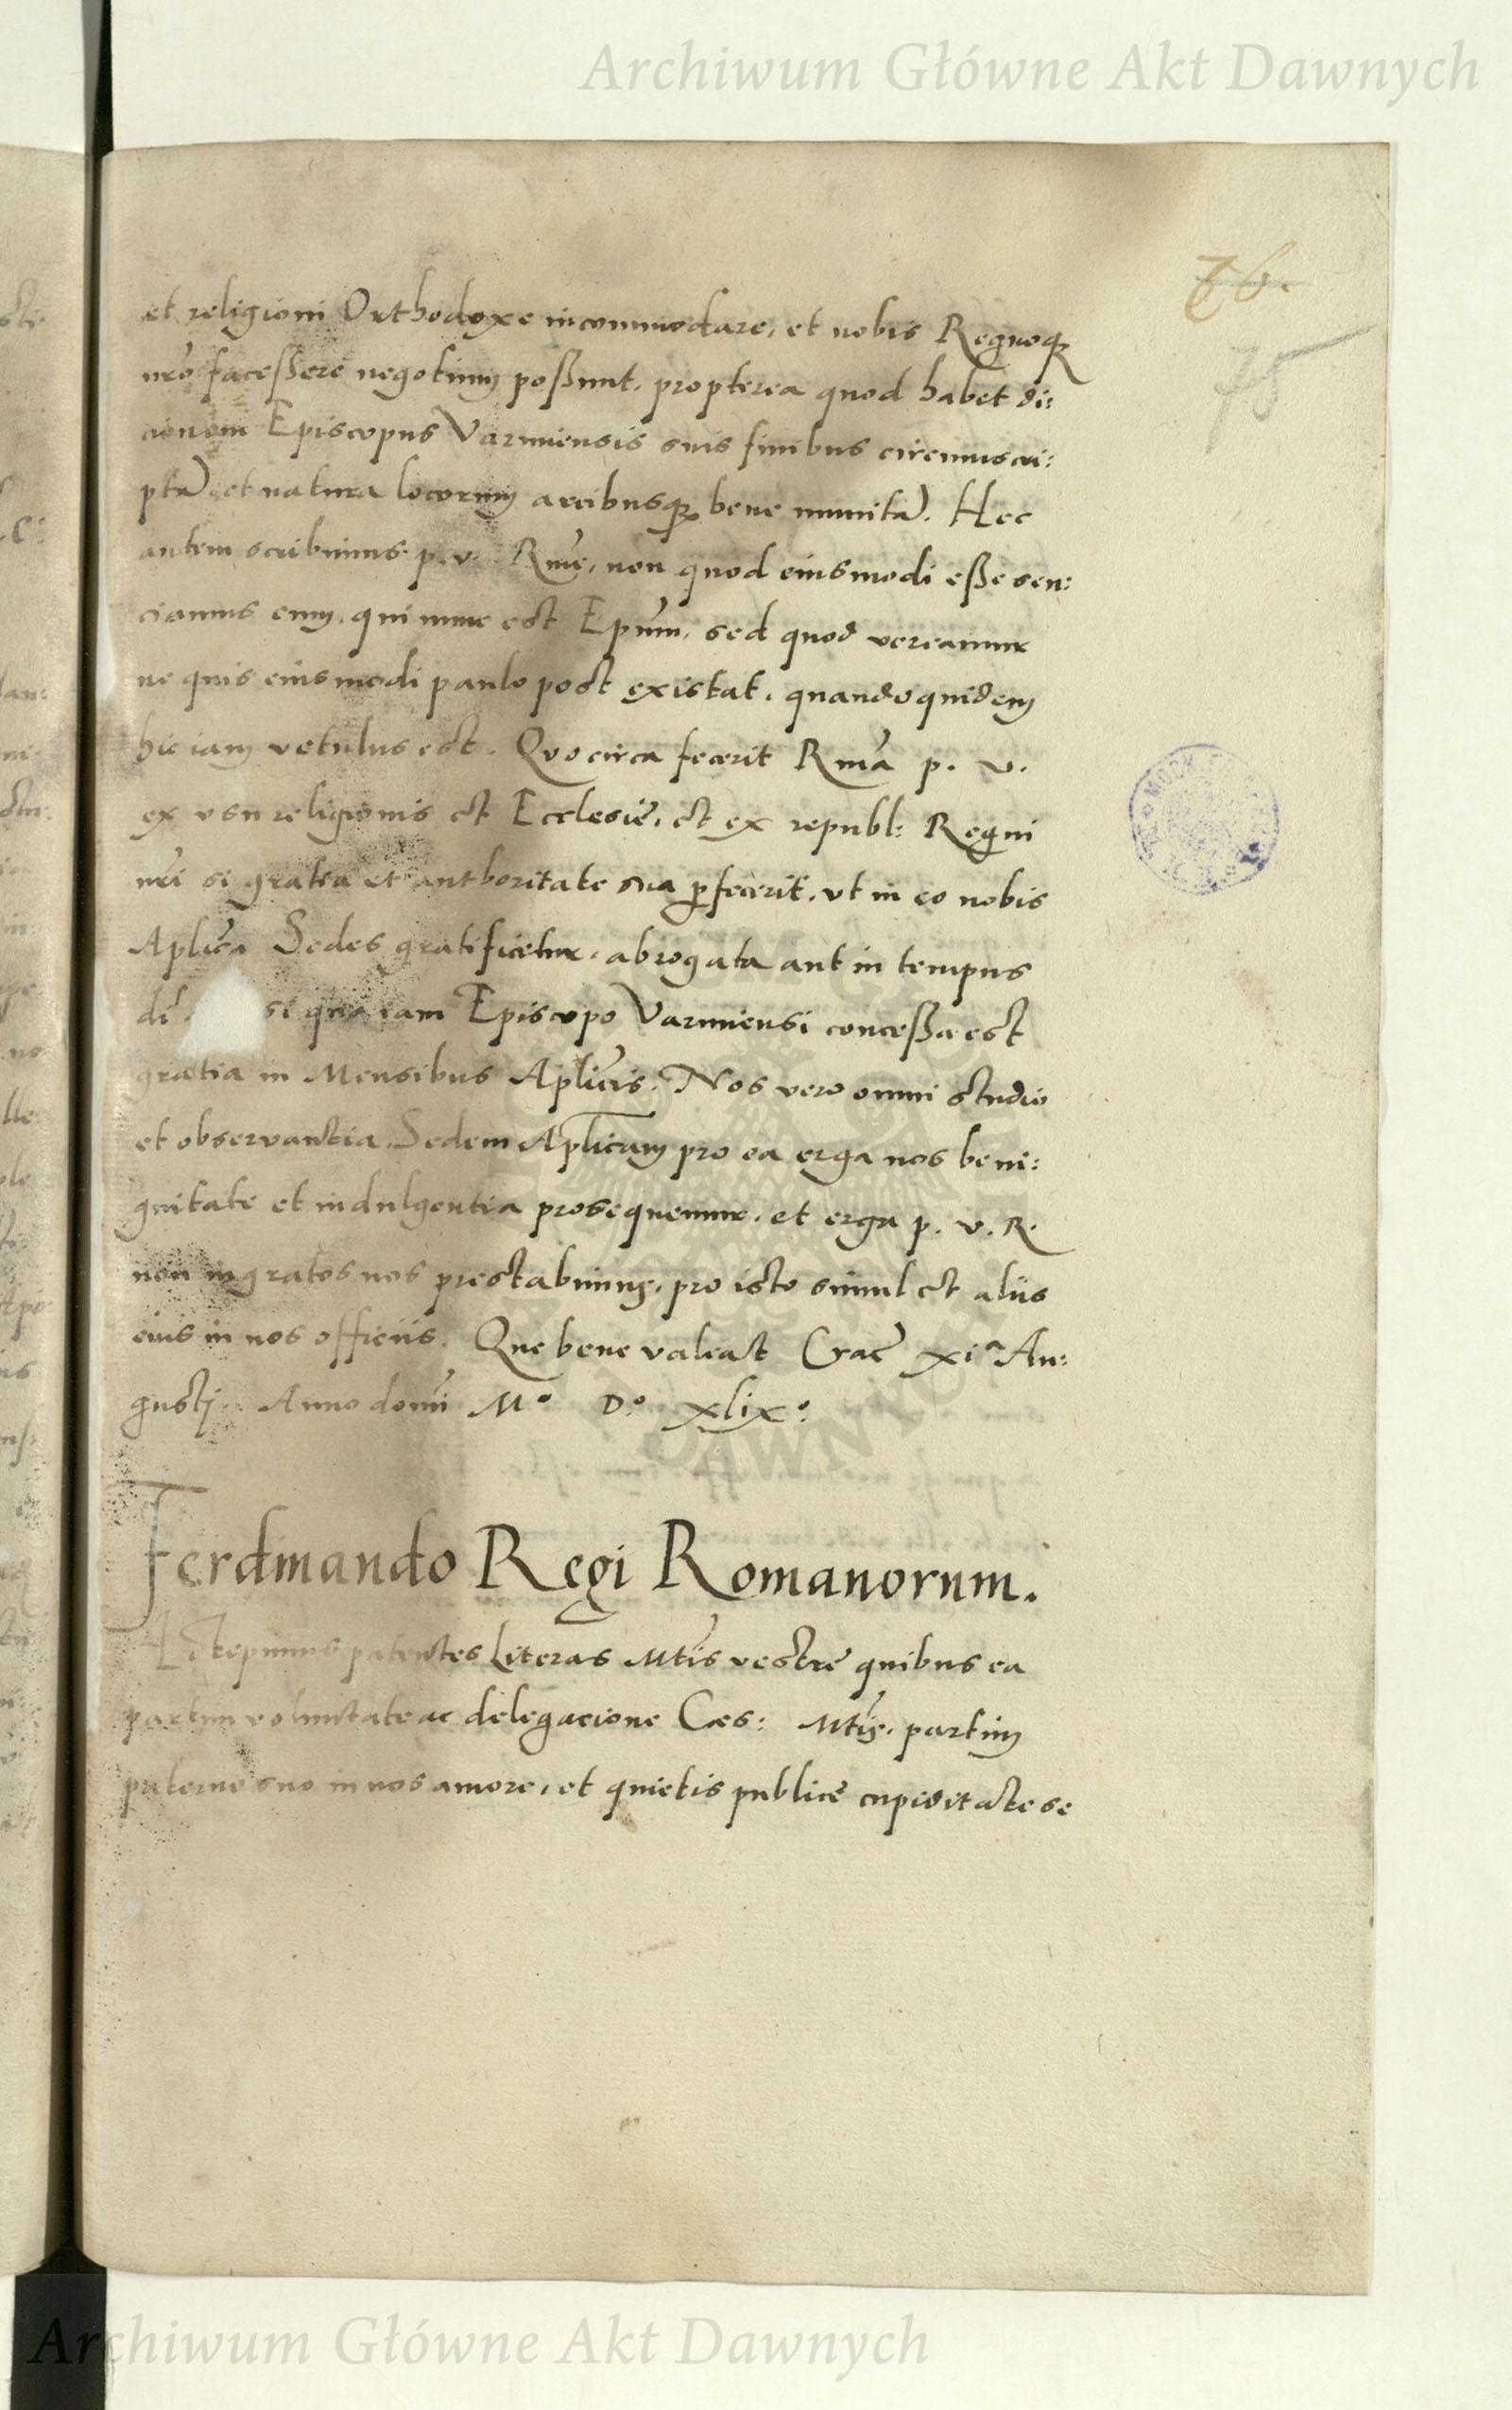 Archiwum Główne Akt Dawnych
76.
75
et religioni Orthodoxe incommodare, et nobis Regnoq₃
nr̃o facessere negotium possunt, propterea quod habet di:
cionem Episcopus Varmiensis suis finibus circumscri:
ptã et natura locorum arcibusq₃ bene munitã. Hec
autem scribimus p. v. Rme, non quod eiusmodi esse sen:
ciamus eum, qui nunc est Epũm, sed quod vereamur
ne quis eiusmodi paulo post existat, quandoquidem
hic iam vetulus est. Quocirca fecerit Rmã p. v.
ex usu religionis et Ecclesie, et ex republ: Regni
nr̃i si gratia et authoritate sua ꝑfecerit, ut in eo nobis
Aplica Sedes gratificetur, abrogata aut in tempus
si qua iam Episcopo Varmiensi concessa est
gratia in Mensibus Aplicis. Nos vero omni studio
et observantia Sedem Aplicam pro ea erga nos beni:
gnitate et indulgentia prosequemur, et erga p. v. R.
non ingratos nos prestabimus, pro isto simul et aliis
eius in nos officiis. Que bene valeat Crac̃ xiª Au:
gusti Anno domĩ Mº Dº xlixº.
Ferdinando Regi Romanorum.
patentes Literas Mtis vestre quibus ea
partim voluntate ac delegacione Cæs: Mtis, partim
paterno suo in nos amore, et quietis publice cupiditate se
DAWNYCH
Archiwum Główne Akt Dawnych